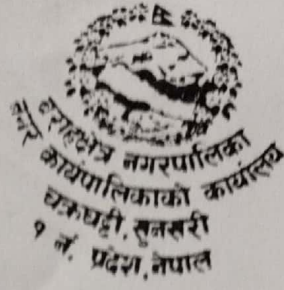 बराहक्षेत्र नगरपालिका
नगर कार्यपालिकाको कार्यालय
चक्रघट्टी, सुनसरी
१ नं. प्रदेश, नेपाल